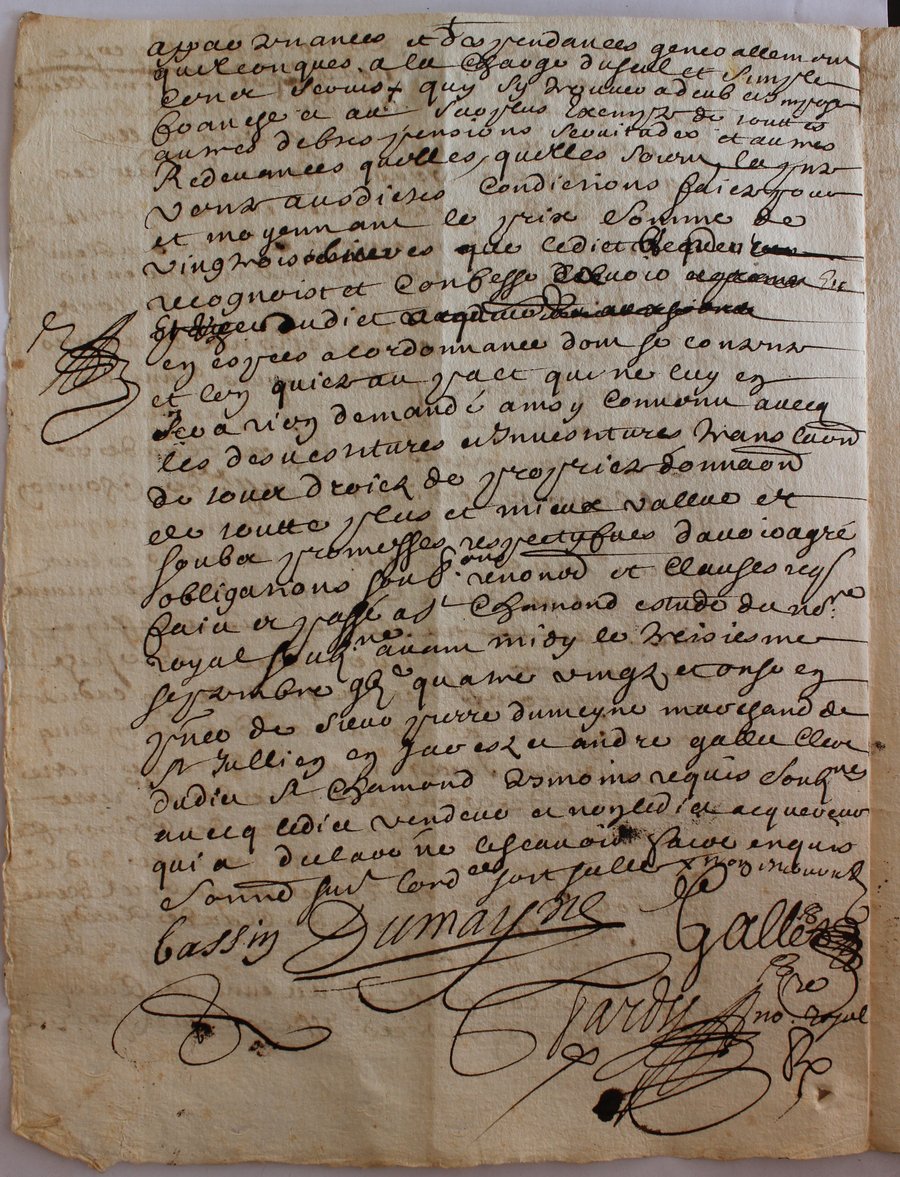 appartenances et deppendances generallement
quelconques a la charge du seul et simple
cener servis quy sy trouvera deub et impose
franche et au surplus exempte de touttes
autres debtes pensions servitudes et autres
Redevances quelles quelles soient la pnte
vente ausdictes conditions faicte pour
et moyennant le prix somme de
vingt trois livres que ledict
recognoist et confesse avoir
dudict
en especes a lordonnance dont se contente
et len quicte au pact que ne luy en
sera rien demandé ainsy convenu avecq
les desvestitures et Investitures translaond
de tout droict de proprieté donnaond
de toutte plus et mieux vallue et
soubz promesses respectyfves davoir agré
obligations soub.ons renonod et clauses reqs
faict et passé a St Chamond estude du no.re
royal soubz.ne avant midy le treisiesme
septembre gbjc quatre vingtz et onse en
pnce de sieur pierre dumeyne marchand de
St Jullien en Jarest et andre galley clerc
dudict St Chamond tesmoins requis soubz.nes
avecq ledict vendeur et non ledict acquereur
qui a declaré ne le scavoir faire enquis
et sommé suit lord.ce
bassin Dumayne Galley
Tardy no.re royal